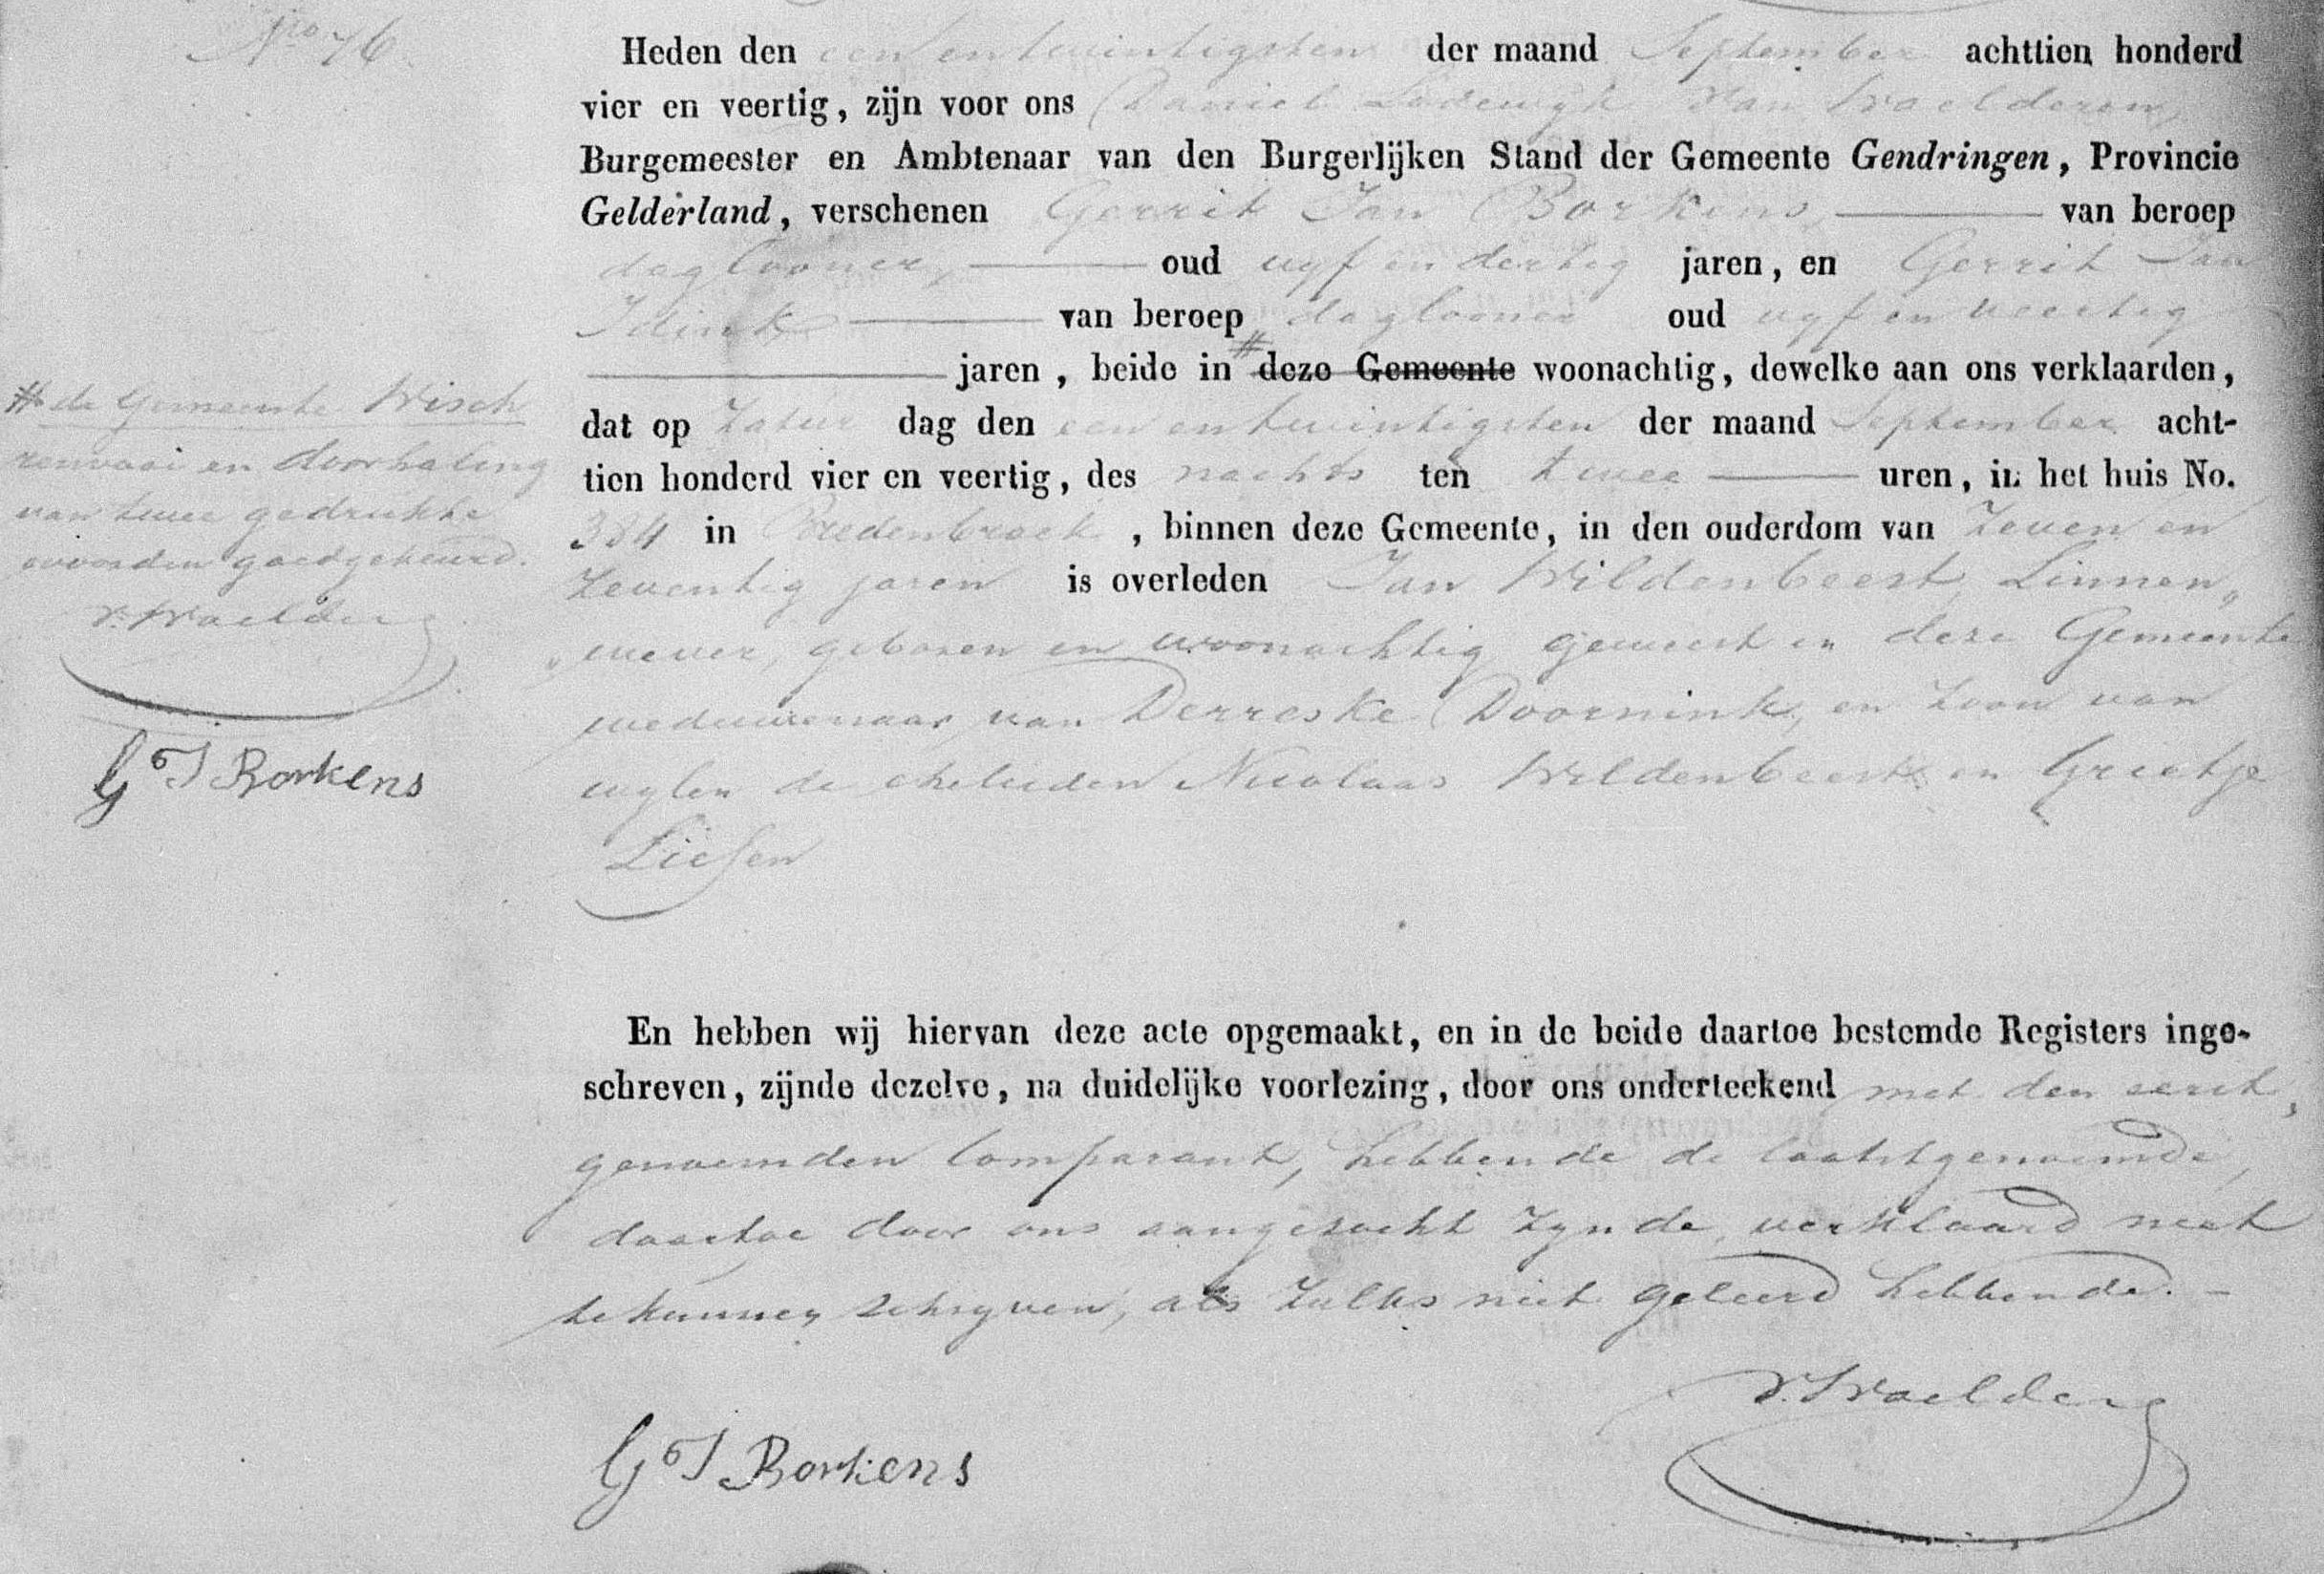 Nro 76.
Heden den een en twintigsten der maand September achttien honderd
vier en veertig, zijn voor ons Daniel Lodewyk van Waelderen,
Burgemeester en Ambtenaar van den Burgerlijken Stand der Gemeente Gendringen, Provincie
Gelderland, verschenen Gerrit Jan Borkens, van beroep
daglooner, oud vyf en dertig jaren, en Gerrit Jan
Idink van beroep daglooner oud vyf en veertig
jaren, beide in # deze Gemeente woonachtig, dewelke aan ons verklaarden,
dat op Zatur dag den een en twintigsten der maand September acht-
tien honderd vier en veertig, des nachts ten twee uren, in het huis No.
384 in Bredenbroek, binnen deze Gemeente, in den ouderdom van Zeven en
Zeventig jaren is overleden Jan Wildenbeest, Linnen„
„wever, geboren en woonachtig geweest in deze Gemeente
weduwenaar van Derreske Doornink, en zoon van
wylen de ehelieden Nicolaas Wildenbeest en Grietje
Liesen
# de Gemeente Wisch
renvooi en doorhaling
van twee gedrukte
woorden goedgekeurd.
v. Waelderen
G J Borkens
En hebben wij hiervan deze acte opgemaakt, en in de beide daartoe bestemde Registers inge-
schreven, zijnde dezelve, na duidelijke voorlezing, door ons onderteekend met den eerst,
genoemden Comparant, hebbende de laatstgenoemde,
daartoe door ons aangezocht zynde, verklaard niet
te kunnen schryven, als zulks niet geleerd hebbende. –
v. Waelderen
G J Borkens